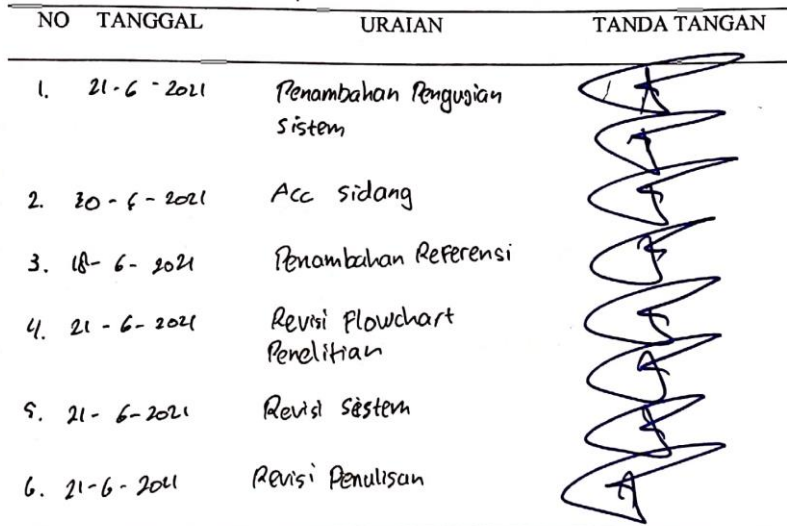 NO TANGGAL URAIAN TANDA TANGAN
1. 21-6-2021 Penambahan Pengujian
sistem
2. 30-6-2021 Acc sidang
3. 18-6-2021 Penambahan Referensi
4. 21-6-2021 Revisi Flowchart
Penelitian
5. 21-6-2021 Revisi Sistem
6. 21-6-2021 Revisi Penulisan